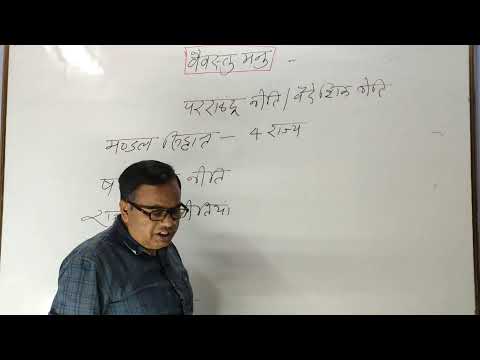 वैवस्त मनु -
परराष्ट्र नीति / वैदेशिक नीति
मण्डल सिद्धांत - 4 राज्य
ष नीति
रा नीतियां